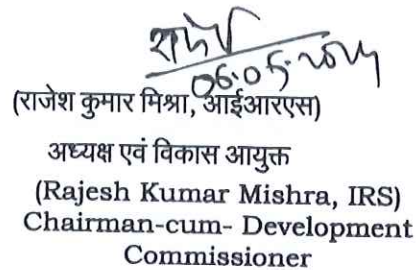 राजेश
06.05.2024
(राजेश कुमार मिश्रा, आईआरएस)
अध्यक्ष एवं विकास आयुक्त
(Rajesh Kumar Mishra, IRS)
Chairman-cum- Development
Commissioner